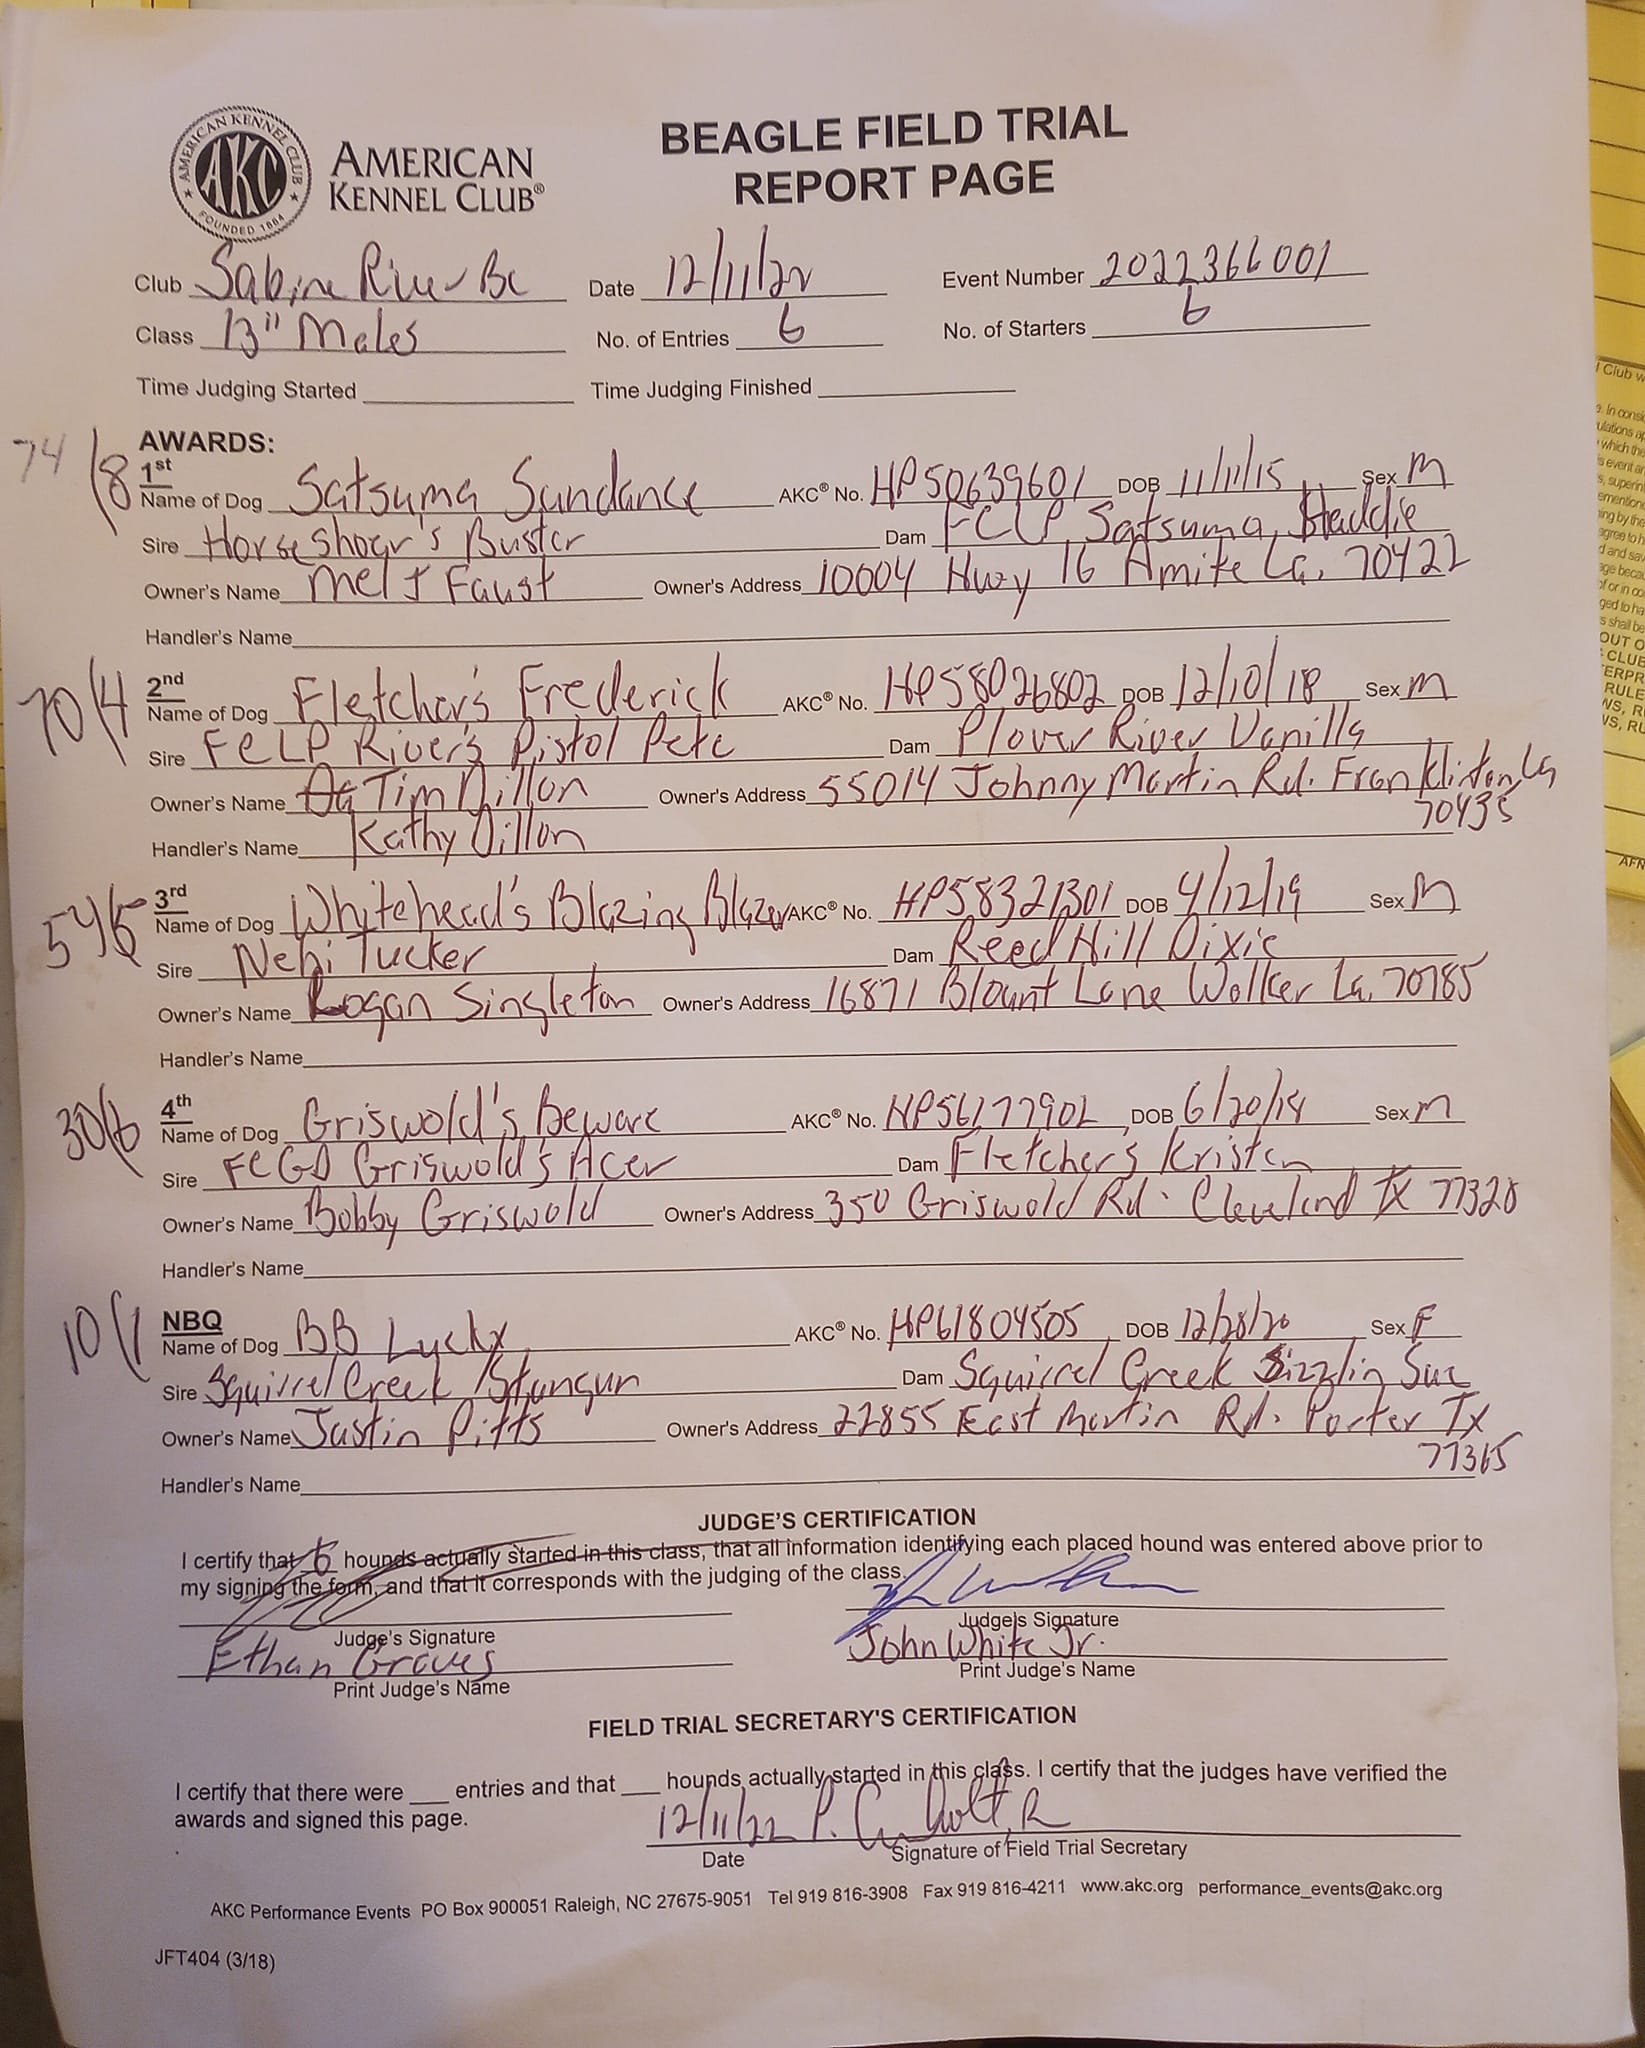 AMERICAN KENNEL CLUB
AKC
FOUNDED 1884
AMERICAN
KENNEL CLUB®
BEAGLE FIELD TRIAL
REPORT PAGE
Club Sabine River Bc Date 12/11/22 Event Number 2022366001
Class 13" Males No. of Entries 6 No. of Starters 6
Time Judging Started Time Judging Finished
AWARDS:
74/8 1st
Name of Dog Satsuma Sundance AKC® No. HP50639601 DOB 11/11/15 Sex M
Sire Horseshoer's Buster Dam FCLP Satsuma
Owner's Name Mel J Faust Owner's Address 10004 Hwy 16 Amite La. 70422
Handler's Name
70/4 2nd
Name of Dog Fletcher's Frederick AKC® No. HP58026802 DOB 12/10/18 Sex M
Sire FCLP River's Pistol Pete Dam Plover River Vanilla
Owner's Name Tim Dillon Owner's Address 55014 Johnny Martin Rd. Franklinton, La
70435
Handler's Name Kathy Dillon
54/5 3rd
Name of Dog Whitehead's Blazing Blazer AKC® No. HP58321301 DOB 4/12/19 Sex M
Sire Nehi Tucker Dam Reed Hill Dixie
Owner's Name Logan Singleton Owner's Address 16871 Blount Lane Walker La. 70785
Handler's Name
30/6 4th
Name of Dog Griswold's Beware AKC® No. HP56177902 DOB 6/20/18 Sex M
Sire FCGD Griswold's Acer Dam Fletchers Kristen
Owner's Name Bobby Griswold Owner's Address 350 Griswold Rd. Cleveland TX 77328
Handler's Name
10/1 NBQ
Name of Dog BB Lucky AKC® No. HP61804505 DOB 12/28/20 Sex F
Sire Squirrel Creek Stungun Dam Squirrel Creek Sizzlin Sue
Owner's Name Justin Pitts Owner's Address 22855 East Martin Rd. Porter TX
77365
Handler's Name
JUDGE'S CERTIFICATION
I certify that 6 hounds actually started in this class, that all information identifying each placed hound was entered above prior to
my signing the form, and that it corresponds with the judging of the class.
Judge's Signature Judge's Signature
Ethan Graves John White Jr.
Print Judge's Name Print Judge's Name
FIELD TRIAL SECRETARY'S CERTIFICATION
I certify that there were ___ entries and that ___ hounds actually started in this class. I certify that the judges have verified the
awards and signed this page.
12/11/22
Date Signature of Field Trial Secretary
AKC Performance Events PO Box 900051 Raleigh, NC 27675-9051 Tel 919 816-3908 Fax 919 816-4211 www.akc.org performance_events@akc.org
JFT404 (3/18)